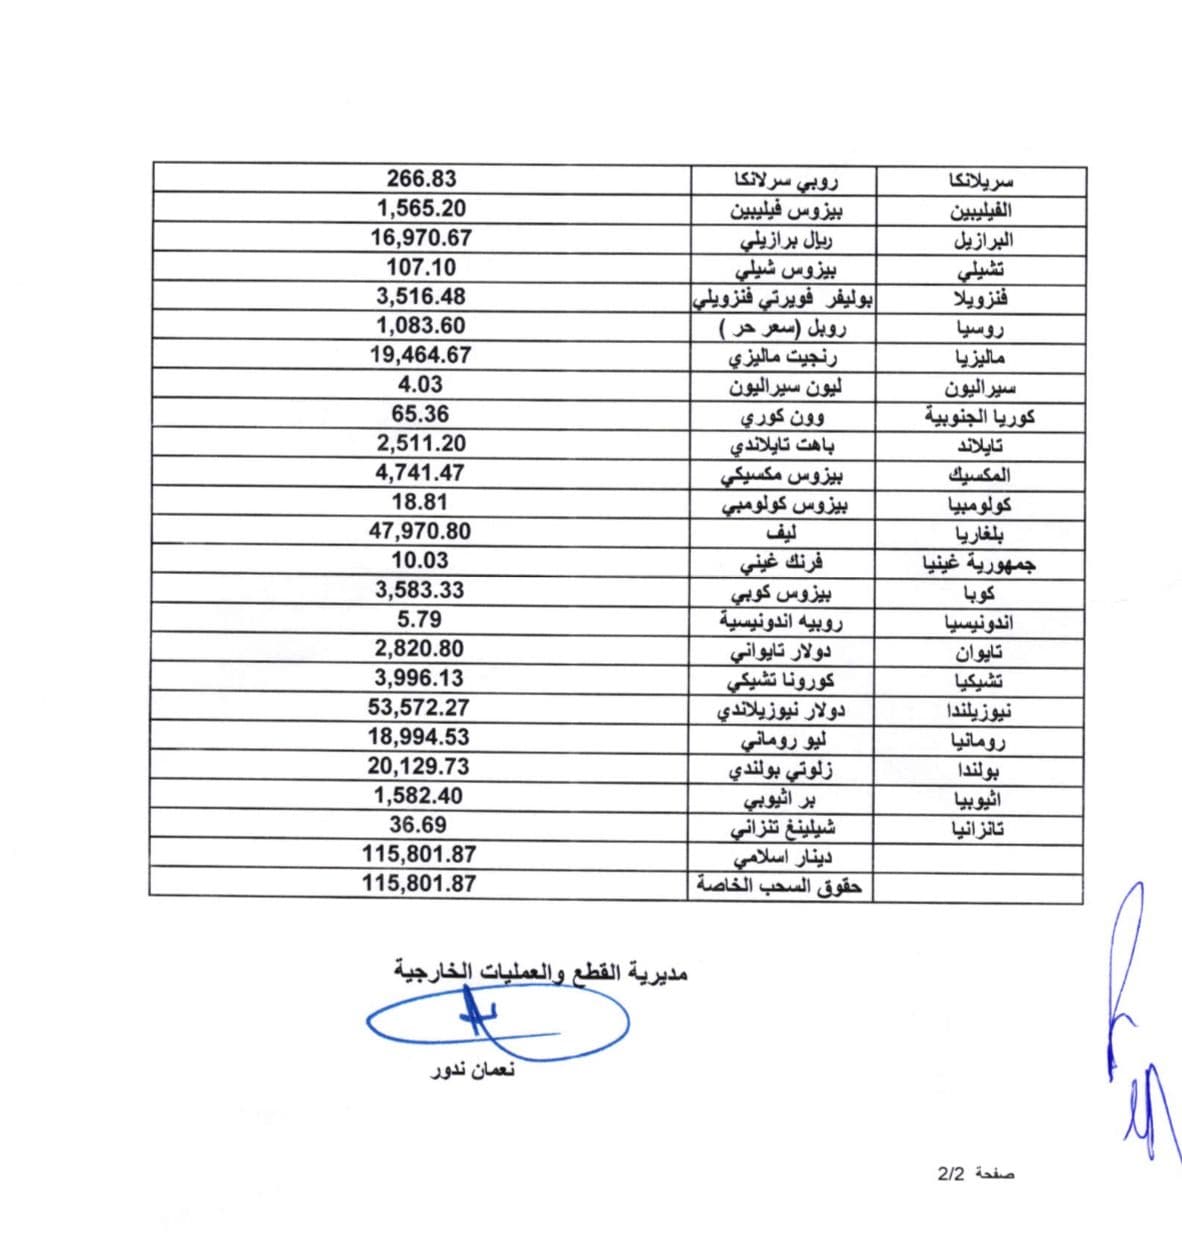 سريلانكا روبي سرلانكا 266.83
الفيليبين بيزوس فيليبين 1,565.20
البرازيل ريال برازيلي 16,970.67
تشيلي بيزوس شيلي 107.10
فنزويلا بوليفر فويرتي فنزويلي 3,516.48
روسيا روبل (سعر حر ) 1,083.60
ماليزيا رنجيت ماليزي 19,464.67
سيراليون ليون سيراليون 4.03
كوريا الجنوبية وون كوري 65.36
تايلاند باهت تايلاندي 2,511.20
المكسيك بيزوس مكسيكي 4,741.47
كولومبيا بيزوس كولومبي 18.81
بلغاريا ليف 47,970.80
جمهورية غينيا فرنك غيني 10.03
كوبا بيزوس كوبي 3,583.33
اندونيسيا روبيه اندونيسية 5.79
تايوان دولار تايواني 2,820.80
تشيكيا كورونا تشيكي 3,996.13
نيوزيلندا دولار نيوزيلاندي 53,572.27
رومانيا ليو روماني 18,994.53
بولندا زلوتي بولندي 20,129.73
اثيوبيا بر اثيوبي 1,582.40
تانزانيا شيلينغ تنزاني 36.69
دينار اسلامي 115,801.87
حقوق السحب الخاصة 115,801.87
مديرية القطع والعمليات الخارجية
نعمان ندور
صفحة 2/2